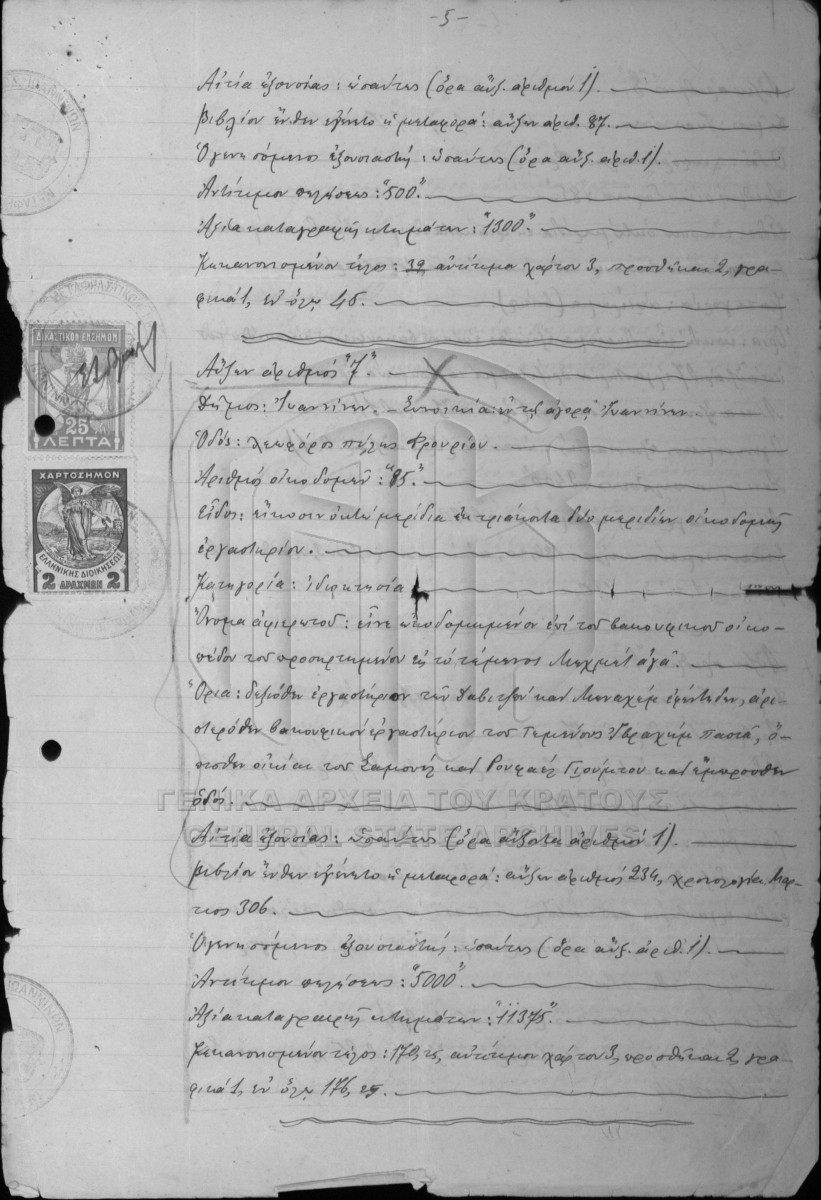 -5-
Αἰτία ἐξουσίας: ὡσαύτως (ὅρα αὔξ. ἀριθμόν 1).
Βιβλίον ἔνθεν ἐγένετο ἡ μεταφορά: αὔξων ἀριθ. 87.
Ὁ γενησόμενος ἐξουσιαστής: ὡσαύτως (ὅρα αὔξ. ἀριθ. 1).
Ἀντίτιμον πωλήσεως: "500".
Ἀξία καταγραφῆς κτημάτων: "1300".
Κεκανονισμένον τέλος: 39 ἀντίτιμον χάρτου 3, προσθῆκαι 2, γρα-
φικά 1, ἐν ὅλῳ 45.
Αὔξων ἀριθμός "7".
Δῆμος: Ἰωαννίνων. - Συνοικία: ἐν τῇ ἀγορᾷ Ἰωαννίνων.
Ὁδός: λεωφόρος πύλης Φρουρίου.
Ἀριθμός οἰκοδομῶν: "85".
Εἶδος: εἴκοσιν ὀκτώ μερίδια ἐκ τριάκοντα δύο μεριδίων οἰκοδομῆς
ἐργαστηρίου.
Κατηγορία: ἰδιοκτησία
Ὄνομα ἀφιερωτοῦ: εἶνε ᾠκοδομημένον ἐπί τοῦ βακουφικοῦ οἰκο-
πέδου τοῦ προσηρτημένου εἰς τό τέμενος Μεχμέτ ἀγᾶ.
Ὅρια: δεξιόθεν ἐργαστήριον τῶν Δαβιτζών καί Μεναχέμ ἐφέντιδων, ἀρι-
στερόθεν βακουφικόν ἐργαστήριον τοῦ Τεμένους Ἰβραχήμ πασᾶ, ὄ-
πισθεν οἰκίαι τοῦ Σαμουήλ καί Ρουφαέλ Γιούμτου καί ἔμπροσθεν
ὁδός.
Αἰτία ἐξουσίας: ὡσαύτως (ὅρα αὔξοντα ἀριθμόν 1).
Βιβλίον ἔνθεν ἐγένετο ἡ μεταφορά: αὔξων ἀριθμός 234, χρονολογία Μάρ-
τιος 306.
Ὁ γενησόμενος ἐξουσιαστής: ὡσαύτως (ὅρα αὔξ. ἀριθ. 1).
Ἀντίτιμον πωλήσεως: "5000".
Ἀξία καταγραφῆς κτημάτων: "11375".
Κεκανονισμένον τέλος: 170, ἀντίτιμον χάρτου 3, προσθῆκαι 2, γρα-
φικά 1, ἐν ὅλῳ 176,
ΔΙΚΑΣΤΙΚΟΝ ΕΝΣΗΜΟΝ
25 ΛΕΠΤΑ
ΧΑΡΤΟΣΗΜΟΝ
ΕΛΛΗΝΙΚΗΣ ΔΙΟΙΚΗΣΕΩΣ
2 ΔΡΑΧΜΩΝ 2
ΓΕΝΙΚΑ ΑΡΧΕΙΑ ΤΟΥ ΚΡΑΤΟΥΣ
GENERAL STATE ARCHIVES